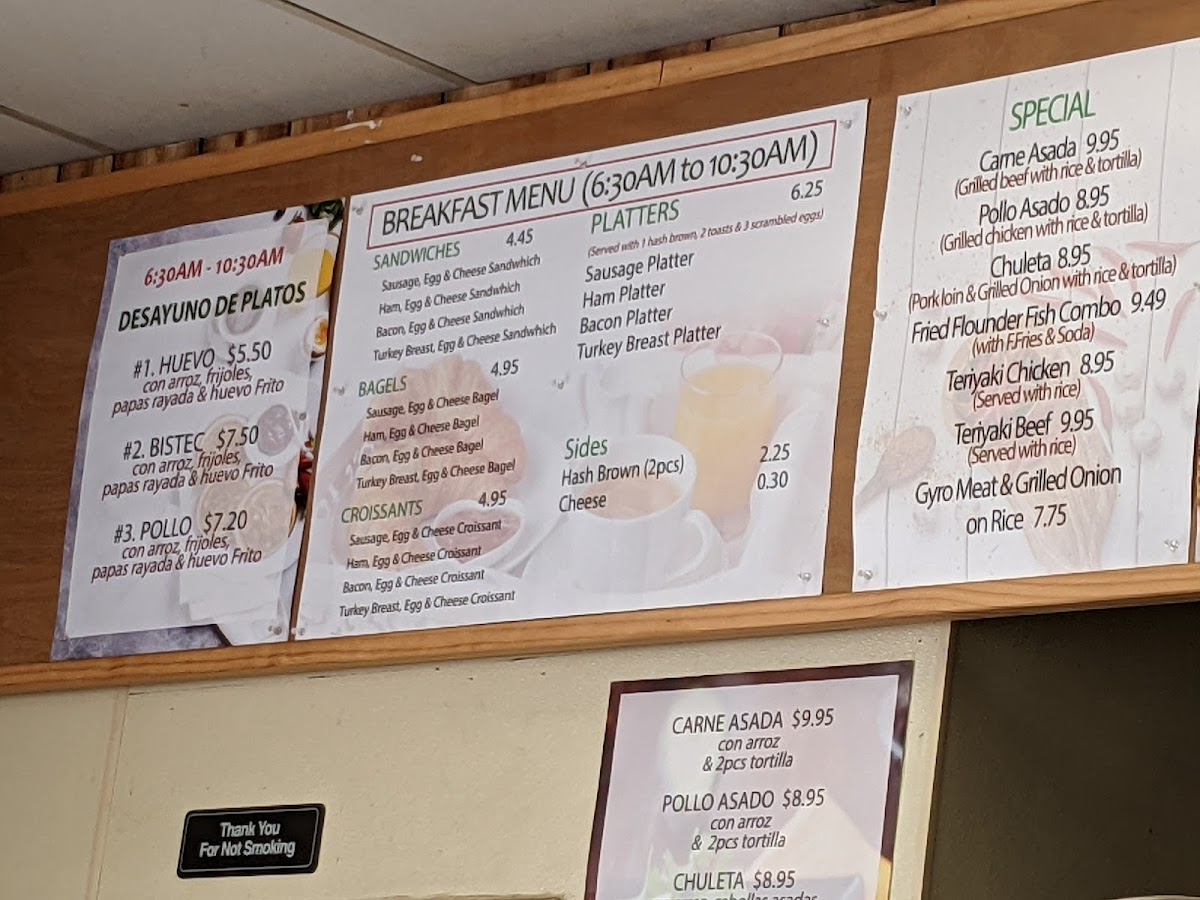 6:30AM - 10:30AM
DESAYUNO DE PLATOS
#1. HUEVO $5.50
con arroz, frijoles,
papas rayada & huevo Frito
#2. BISTEC $7.50
con arroz, frijoles,
papas rayada & huevo Frito
#3. POLLO $7.20
con arroz, frijoles,
papas rayada & huevo Frito
BREAKFAST MENU (6:30AM to 10:30AM)
SANDWICHES 4.45
Sausage, Egg & Cheese Sandwhich
Ham, Egg & Cheese Sandwhich
Bacon, Egg & Cheese Sandwhich
Turkey Breast, Egg & Cheese Sandwhich
BAGELS 4.95
Sausage, Egg & Cheese Bagel
Ham, Egg & Cheese Bagel
Bacon, Egg & Cheese Bagel
Turkey Breast, Egg & Cheese Bagel
CROISSANTS 4.95
Sausage, Egg & Cheese Croissant
Ham, Egg & Cheese Croissant
Bacon, Egg & Cheese Croissant
Turkey Breast, Egg & Cheese Croissant
PLATTERS 6.25
(Served with 1 hash brown, 2 toasts & 3 scrambled eggs)
Sausage Platter
Ham Platter
Bacon Platter
Turkey Breast Platter
Sides
Hash Brown (2pcs) 2.25
Cheese 0.30
SPECIAL
Carne Asada 9.95
(Grilled beef with rice & tortilla)
Pollo Asado 8.95
(Grilled chicken with rice & tortilla)
Chuleta 8.95
(Pork loin & Grilled Onion with rice & tortilla)
Fried Flounder Fish Combo 9.49
(with F.Fries & Soda)
Teriyaki Chicken 8.95
(Served with rice)
Teriyaki Beef 9.95
(Served with rice)
Gyro Meat & Grilled Onion
on Rice 7.75
CARNE ASADA $9.95
con arroz
& 2pcs tortilla
POLLO ASADO $8.95
con arroz
& 2pcs tortilla
CHULETA $8.95
Thank You
For Not Smoking